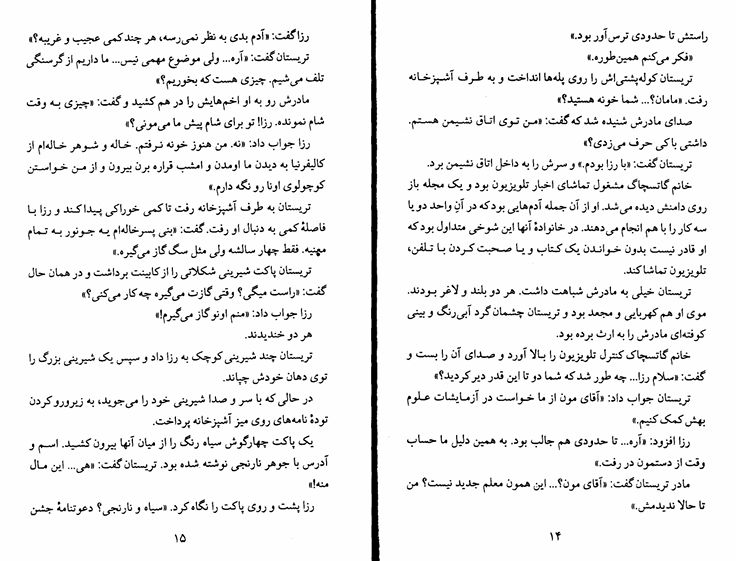 راستش تا حدودی ترس‌آور بود.»
«فکر می‌کنم همین‌طوره.»
تریستان کوله‌پشتی‌اش را روی پله‌ها انداخت و به طرف آشپزخانه
رفت. «مامان؟... شما خونه هستید؟»
صدای مادرش شنیده شد که گفت: «من توی اتاق نشیمن هستم.
داشتی با کی حرف می‌زدی؟»
تریستان گفت: «با رزا بودم.» و سرش را به داخل اتاق نشیمن برد.
خانم گاتسچاگ مشغول تماشای اخبار تلویزیون بود و یک مجله باز
روی دامنش دیده می‌شد. او از آن جمله آدم‌هایی بود که در آنِ واحد دو یا
سه کار را با هم انجام می‌دهند. در خانوادهٔ آنها این شوخی متداول بود که
او قادر نیست بدون خوانـدن یک کتاب و یـا صحبت کردن بـا تـلفن،
تلویزیون تماشا کند.
تریستان خیلی به مادرش شباهت داشت. هر دو بلند و لاغر بودند.
موی او هم کهربایی و مجعد بود و تریستان چشمان گرد آبی‌رنگ و بینی
کوفته‌ای مادرش را به ارث برده بود.
خانم گاتسچاک کنترل تلویزیون را بـالا آورد و صـدای آن را بست و
گفت: «سلام رزا... چه طور شد که شما دو تا این قدر دیر کردید؟»
تریستان جواب داد: «آقای مون از ما خـواست در آزمـایشات عـلوم
بهش کمک کنیم.»
رزا افزود: «آره... تا حدودی هم جالب بود. به همین دلیل ما حساب
وقت از دستمون در رفت.»
مادر تریستان گفت: «آقای مون؟... این همون معلم جدید نیست؟ من
تا حالا ندیدمش.»
۱۴
رزا گفت: «آدم بدی به نظر نمی‌رسه، هر چند کمی عجیب و غریبه؟»
تریستان گفت: «آره... ولی موضوع مهمی نیس... ما داریم از گرسنگی
تلف می‌شیم. چیزی هست که بخوریم؟»
مادرش رو به او اخم‌هایش را در هم کشید و گفت: «چیزی بـه وقت
شام نمونده. رزا! تو برای شام پیش ما می‌مونی؟»
رزا جواب داد: «نه. من هنوز خونه نـرفتم. خـاله و شـوهر خـاله‌ام از
کالیفرنیا به دیدن ما اومدن و امشب قراره برن بیرون و از مـن خـواستن
کوچولوی اونا رو نگه دارم.»
تریستان به طرف آشپزخانه رفت تا کمی خوراکی پیدا کـند و رزا بـا
فاصلهٔ کمی به دنبال او رفت. گفت: «بنی پسرخاله‌ام یـه جـونور بـه تـمام
معنیه. فقط چهار سالشه ولی مثل سگ گاز می‌گیره.»
تریستان پاکت شیرینی شکلاتی را از کابینت برداشت و در همان حال
گفت: «راست میگی؟ وقتی گازت می‌گیره چه کار می‌کنی؟»
رزا جواب داد: «منم اونو گاز می‌گیرم!»
هر دو خندیدند.
تریستان چند شیرینی کوچک به رزا داد و سپس یک شیرینی بزرگ را
توی دهان خودش چپاند.
در حالی که با سر و صدا شیرینی خود را می‌جوید، به زیرورو کردن
تودهٔ نامه‌های روی میز آشپزخانه پرداخت.
یک پاکت چهارگوش سیاه رنگ را از میان آنها بیرون کشـید. اسـم و
آدرس با جوهر نارنجی نوشته شده بود. تریستان گفت: «هی... این مـال
منه!»
رزا پشت و روی پاکت را نگاه کرد. «سیاه و نارنجی؟ دعوتنامهٔ جشن
۱۵